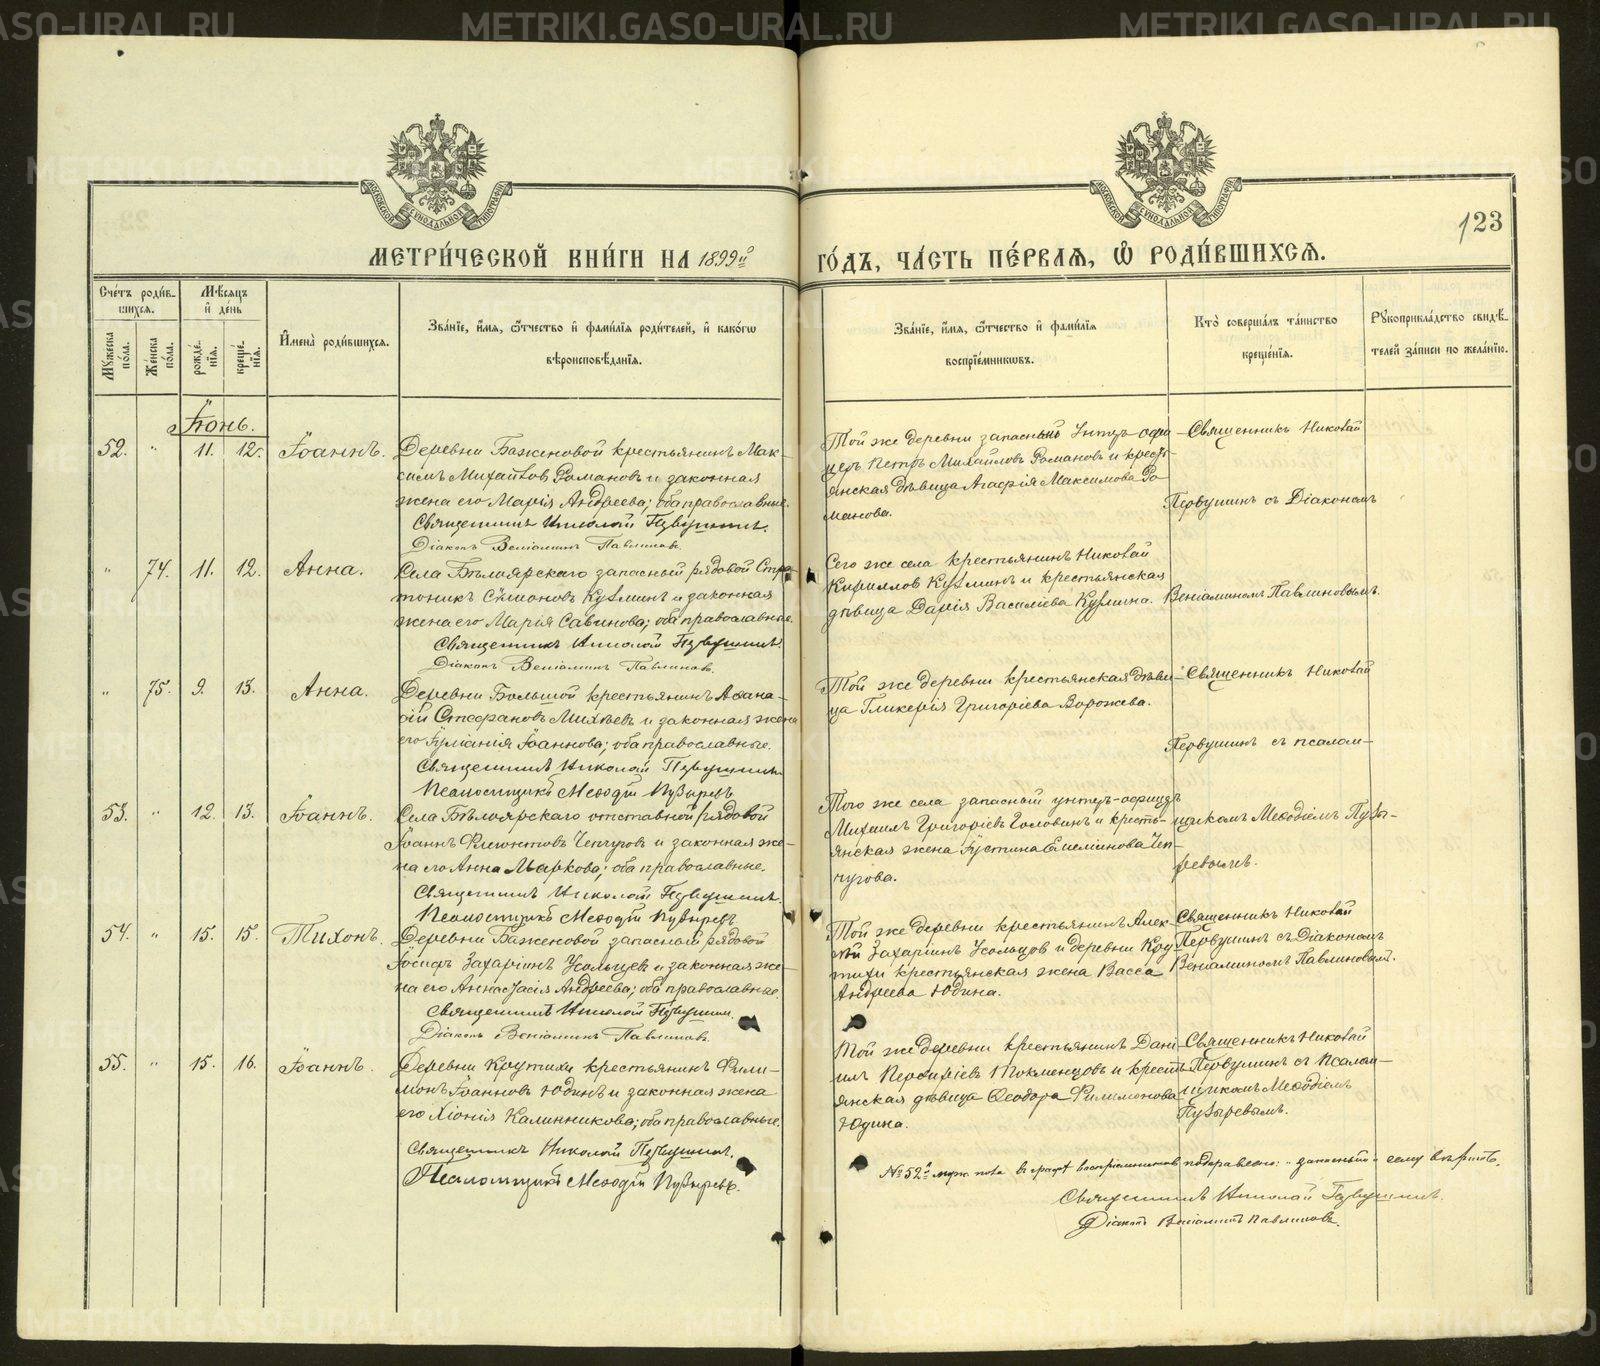 METRIKI.GASO-URAL.RU
123
МЕТРИ́ЧЕСКОЙ КНИ́ГИ НА 1899й
ГО́ДЪ, ЧА́СТЬ ПЕ́РВАѦ, Ѡ҆ РОДИ́ВШИХСѦ.
МОСКОВСКОЙ СѴНОДАЛЬНОЙ ТИПОГРАФІИ
Сче́тъ роди́в-
шихсѧ.
Мѣ́сѧцъ
и҆ де́нь
Мꙋ́жеска по́ла.
Же́нска по́ла.
рожде́-нїѧ.
креще́-нїѧ.
И҆мена̀ роди́вшихсѧ.
Зва́нїе, и҆́мѧ, ѻ҆́тчество и҆ фами́лїѧ роди́телей, и҆ како́гѡ
вѣроисповѣ́данїѧ.
Зва́нїе, и҆́мѧ, ѻ҆́тчество и҆ фами́лїѧ
воспрїе́мникѡвъ.
Кто̀ соверша́лъ та́инство
креще́нїѧ.
Рꙋкоприкла́дство свидѣ́-
телей за́писи по жела́нїю.
Іюнь.
52. " 11. 12. Іоаннъ.
Деревни Баженовой крестьянинъ Мак-
симъ Михайловъ Романовъ и законная
жена его Марія Андреева; оба православные.
Священникъ Николай Первушинъ.
Діаконъ Веніаминъ Павлиновъ.
Той же деревни запасный унтеръ-офи-
церъ Петръ Михайловъ Романовъ и кресть-
янская дѣвица Агафія Максимова Ро-
манова.
Священникъ Николай
Первушинъ съ Діакономъ
" 74. 11. 12. Анна.
Села Бѣлоярскаго запасный рядовой Стра-
тоникъ Симоновъ Кузминъ и законная
жена его Марія Савинова; оба православные.
Священникъ Николай Первушинъ.
Діаконъ Веніаминъ Павлиновъ.
Сего же села крестьянинъ Николай
Кирилловъ Кузминъ и крестьянская
дѣвица Дарія Василіева Кузмина.
Веніаминомъ Павлиновымъ.
" 75. 9. 13. Анна.
Деревни Большой крестьянинъ Афана-
сій Стефановъ Михѣевъ и законная жена
его Іуліанія Іоаннова; оба православные.
Священникъ Николай Первушинъ
Псаломщикъ Меѳодій Пузыревъ
Той же деревни крестьянская дѣви-
ца Гликерія Григоріева Ворожева.
Священникъ Николай
Первушинъ съ псалом-
53. " 12. 13. Іоаннъ.
Села Бѣлоярскаго отставной рядовой
Іоаннъ Филентовъ Чепчуговъ и законная же-
на его Анна Маркова; оба православные.
Священникъ Николай Первушинъ.
Псаломщикъ Меѳодій Пузыревъ.
Того же села запасный унтеръ-офицеръ
Михаилъ Григоріевъ Головинъ и кресть-
янская жена Іустина Емеліянова Чеп-
чугова.
щикомъ Меѳодіемъ Пузы-
ревымъ.
54. " 15. 15. Тихонъ.
Деревни Баженовой запасный рядовой
Іосифъ Захаріинъ Усольцевъ и законная же-
на его Анастасія Андреева; оба православные.
Священникъ Николай Первушинъ.
Діаконъ Веніаминъ Павлиновъ.
Той же деревни крестьянинъ Алек-
сѣй Захаріинъ Усольцовъ и деревни Кру-
тихи крестьянская жена Васса
Андреева Юдина.
Священникъ Николай
Первушинъ съ Діакономъ
Веніаминомъ Павлиновымъ.
55. " 15. 16. Іоаннъ.
Деревни Крутихи крестьянинъ Фили-
монъ Іоанновъ Юдинъ и законная жена
его Хіонія Калинникова; оба православные.
Священникъ Николай Первушинъ.
Псаломщикъ Меѳодій Пузыревъ.
Той же деревни крестьянинъ Дани-
илъ Перфиріевъ Токменцовъ и кресть-
янская дѣвица Ѳеодора Филимонова
Юдина.
Священникъ Николай
Первушинъ съ Псалом-
щикомъ Меѳодіемъ
Пузыревымъ.
№ 52й муж. пола въ графѣ воспріемниковъ подправлено: "запасный" сему вѣрить.
Священникъ Николай Первушинъ.
Діаконъ Веніаминъ Павлиновъ.